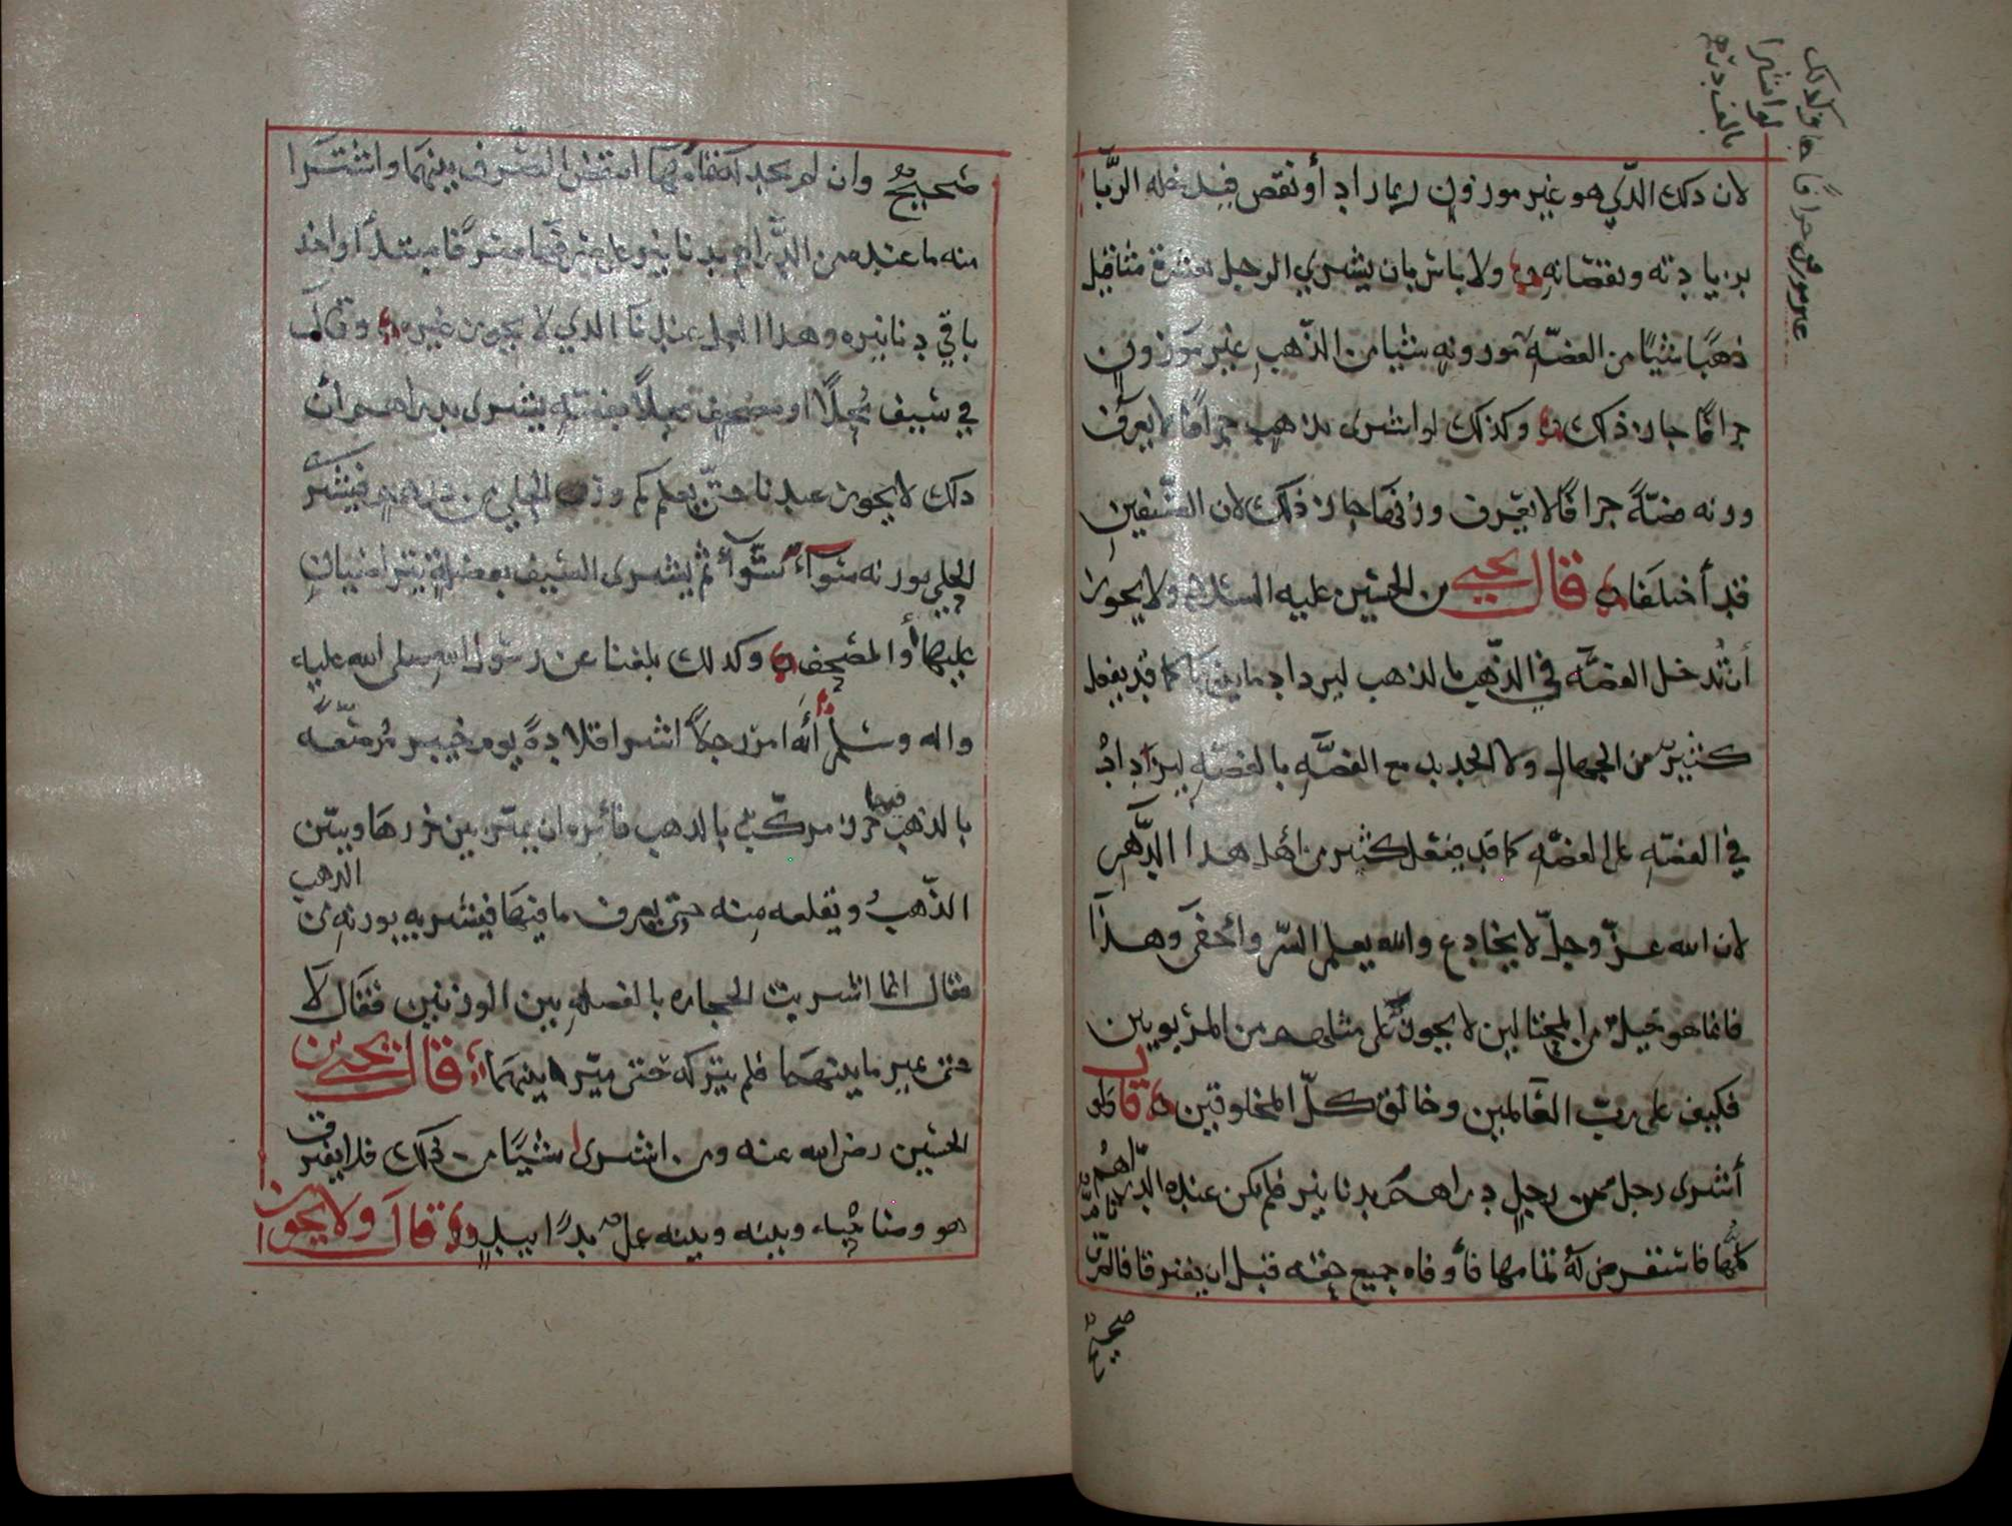 لان ذلك الذي هو غير موزون ربما زاد أو نقص فيدخله الربا
بزيادته ونقصانه ولا باس بان يشتري الرجل بعشرة مثاقيل
ذهبا شيا من الفضه موزونه شيا من الذهب غير موزون
جزافا جاز ذلك وكذلك لو اشترى بذهب جزافا لا يعرف
وزنه فضة جزافا لا يعرف وزنها جاز ذلك لان الصنفين
قد أختلفا قال يحيى بن الحسين عليه السلام ولا يجوز
أن تدخل الفضه في الذهب بالذهب ليزداد دنانيرا كما قد يفعل
كثير من الجهال ولا الحديد مع الفضه بالفضه ليزداد
في الفضه على الفضه كما قد يفعل كثير من أهل هذا الدهر
لان الله عز وجل لا يخادع والله يعلم السر وأخفى وهذا
فانما هو حيل من المحتالين لا يجوز على مثلهم من المربويين
فكيف على رب العالمين وخالق كل المخلوقين قال ولو
أشترى رجل من رجل دراهم بدنانير فلم يكن عنده الدراهم تامه
كلها فاستقرض له تمامها فأوفاه جميع حقه قبل ان يفترقا فالصرف
صحيح
وكذلك
لو اشترا
بالف درهم
جزافا
غير موزون
صحيح وان لم يجد تمامها انتقض الصرف بينهما واشترا
منه ما عنده من الدراهم بدنانير على صرفهما صرفا مبتدأ واخذ
باقي دنانيره وهذا العمل عندنا الذي لا يجوز غيره وقال
في سيف محلا او مصحف محلا بفضه يشترى بدراهم أن
ذلك لا يجوز عندنا حتى يعلم كم وزن الحلي من فيشترى
الحلي بوزنه سوآء سوآء ثم يشترى السيف بفضلة يتراضيان
عليها أو المصحف وكذلك بلغنا عن رسول الله صلى الله عليه
واله وسلم أنه امر رجلا اشترا قلادة يوم خيبر مرصعه
بالذهب فيها خرز مركب بالذهب فأمره ان يميز بين خرزها وبين
الذهب ويقلعه منه حتى يعرف ما فيها فيشتريه بوزنه من الذهب
فقال انما اشتريت الحجاره بالفضله بين الوزنين فقال لا
حتى تميز ما بينهما فلم يتركه حتى ميز ما بينهما قال يحيى بن
الحسين رضي الله عنه ومن اشترى شيا من ذلك فلا يفترق
هو وصاحبه وبينه وبينه عمل بدا بيد قال ولا يجوز أن